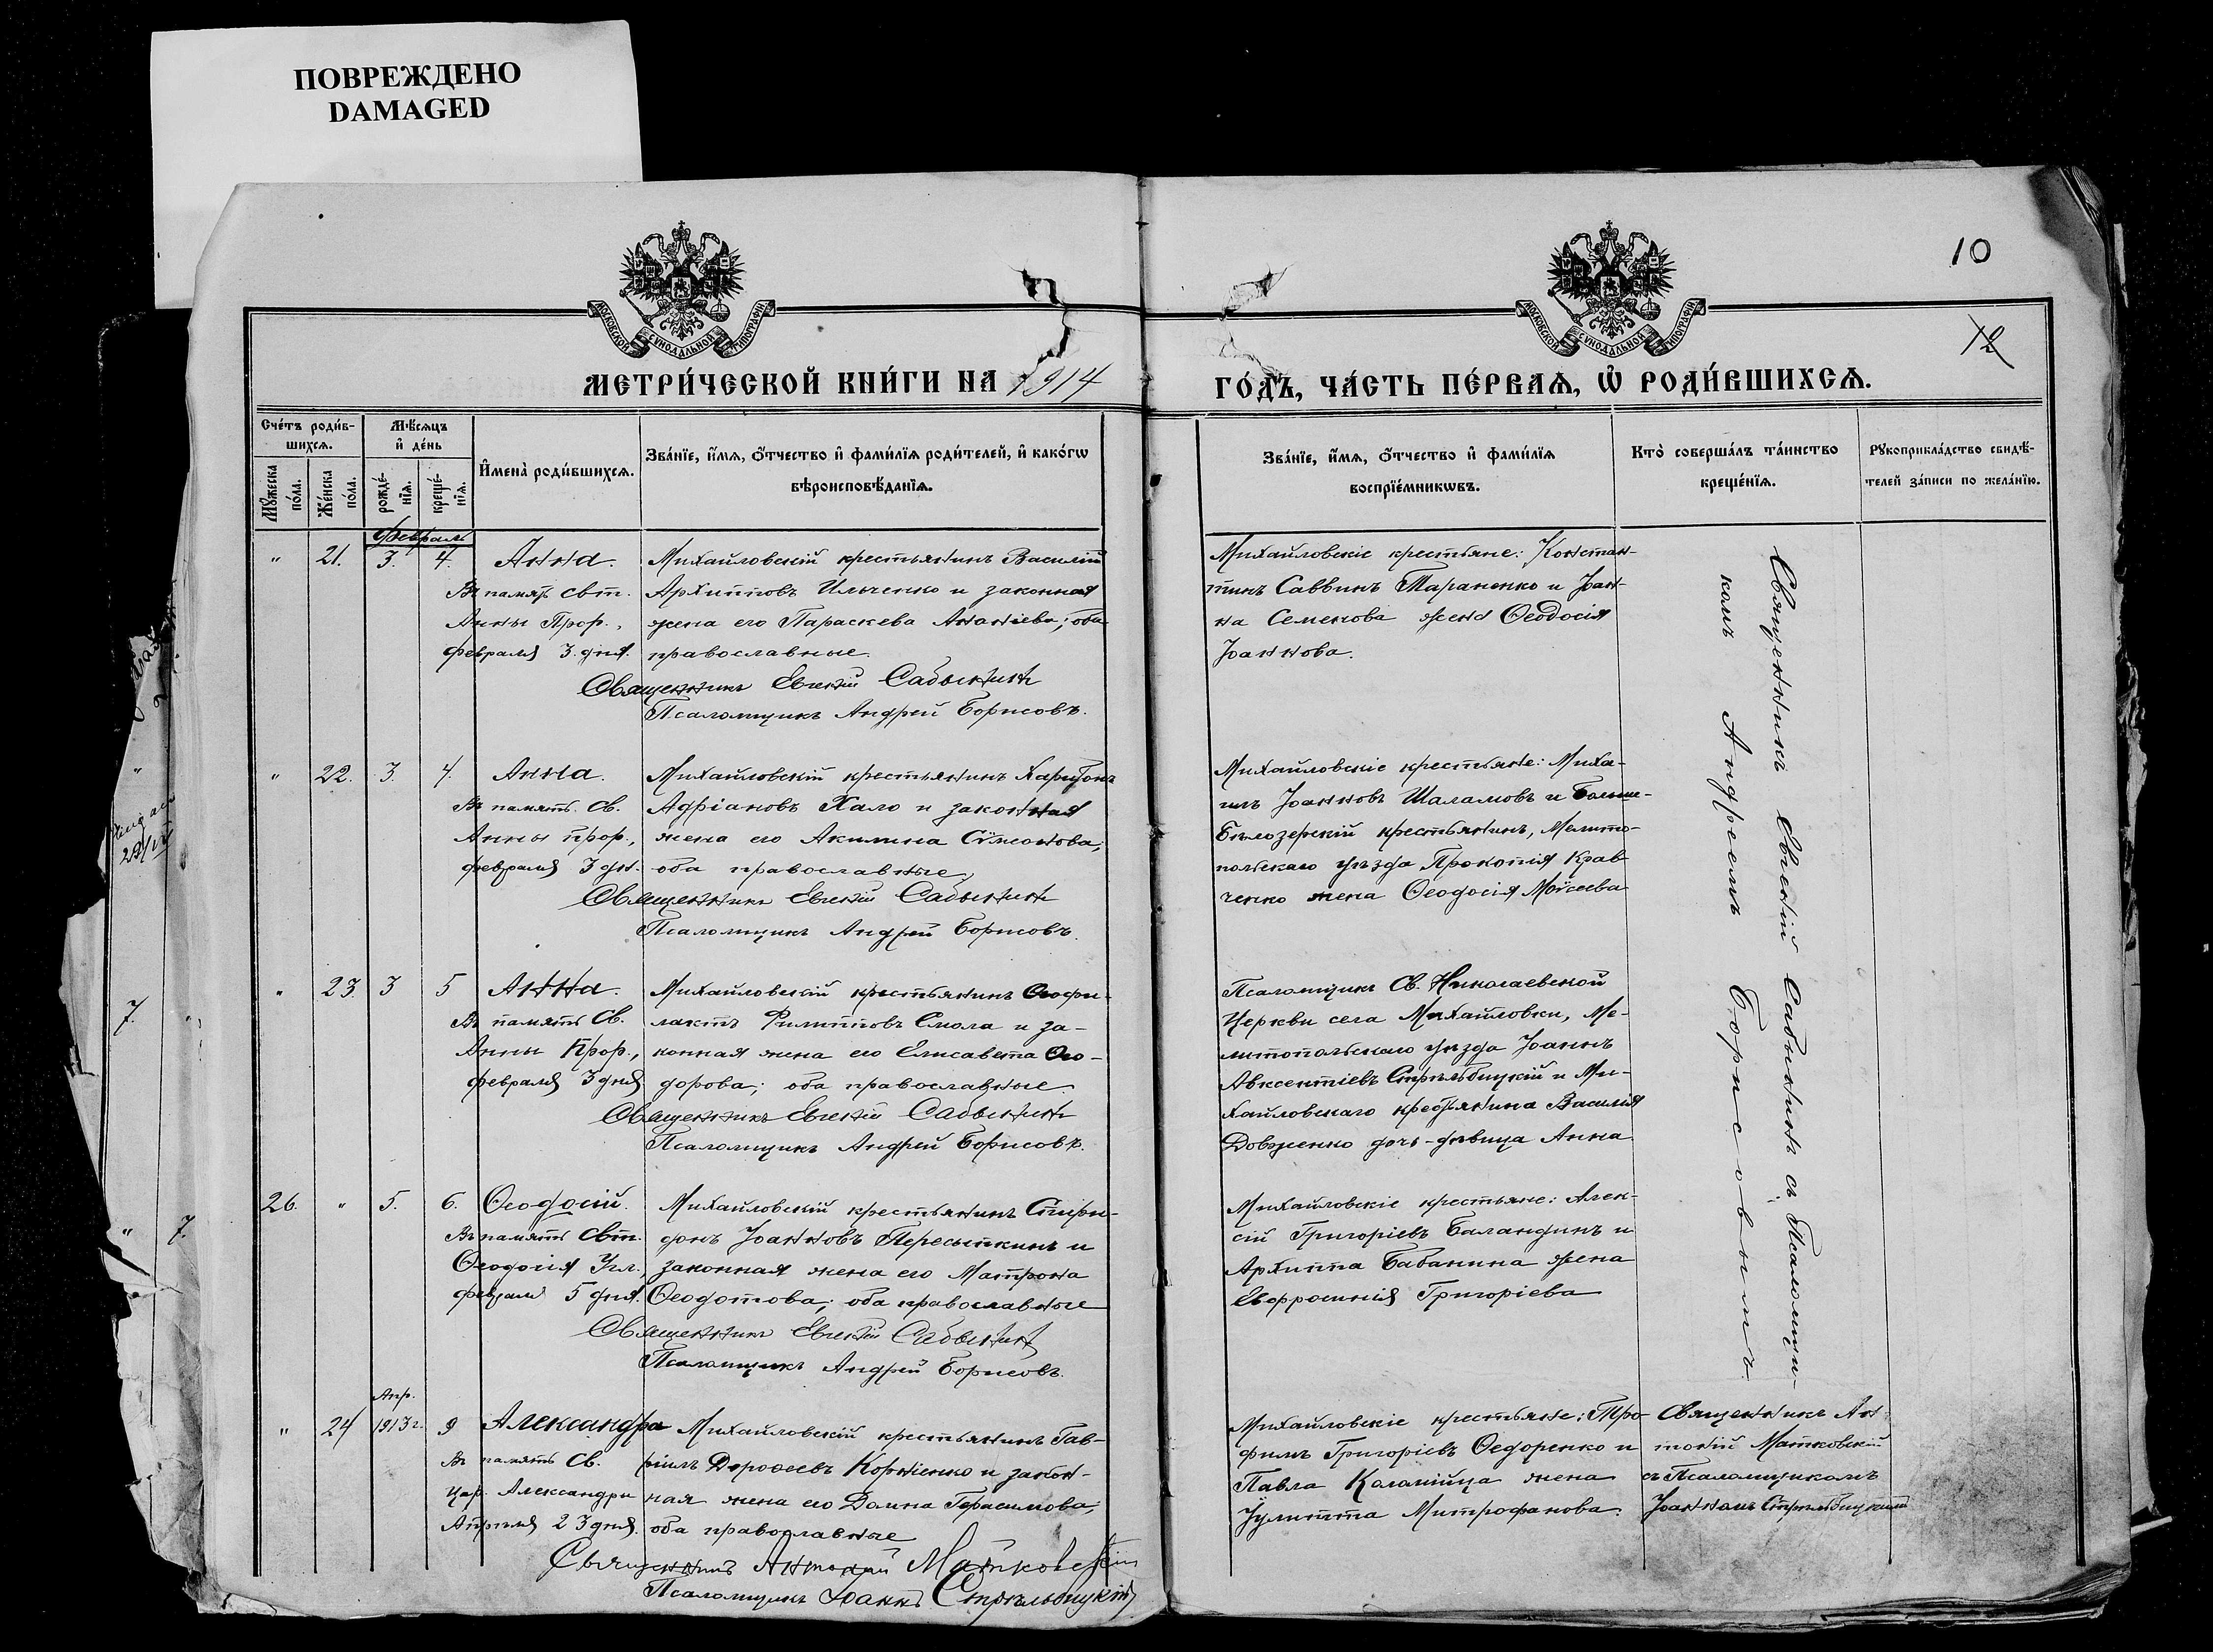 ПОВРЕЖДЕНО
DAMAGED
10
12
МЕТРИ́ЧЕСКОЙ КНИ́ГИ НА 1914
ГО́ДЪ, ЧА́СТЬ ПЕ́РВАѦ, Ѡ҆ РОДИ́ВШИХСѦ.
Сче́тъ роди́в-
шихсѧ.
Мꙋ́жеска по́ла.
Же́нска по́ла.
Мѣ́сѧцъ
и҆ де́нь
рожде́-
нїѧ.
креще́-
нїѧ.
И҆мена̀ роди́вшихсѧ.
Зва́нїе, и҆́мѧ, о҆́тчество и҆ фами́лїѧ роди́телей, и҆ како́гѡ
вѣроисповѣ́данїѧ.
Зва́нїе, и҆́мѧ, о҆́тчество и҆ фами́лїѧ
воспрїе́мникѡвъ.
Кто̀ соверша́лъ та́инство
креще́нїѧ.
Рꙋкоприкла́дство свидѣ́-
телей за́писи по жела́нїю.
Февраль
" 21. 3. 4. Анна.
Въ память свт.
Анны Прор.,
февраля 3. дня.
Михайловскій крестьянинъ Василій
Архипповъ Ильченко и законная
жена его Параскева Ананіева; оба
православные.
Священникъ Евгеній Сабынинъ
Псаломщикъ Андрей Борисовъ.
Михайловскіе крестьяне: Констан-
тинъ Саввинъ Тараненко и Іоан-
на Семенова жена Ѳеодосія
Іоаннова.
Священникъ Евгеній Сабынинъ съ Псаломщи-
комъ Андреемъ Борисовымъ
" 22. 3. 4. Анна.
Въ память Св.
Анны прор.,
февраля 3 дн.
Михайловскій крестьянинъ Харитонъ
Адріановъ Хало и законная
жена его Акилина Сѵмеонова;
оба православные
Священникъ Евгеній Сабынинъ
Псаломщикъ Андрей Борисовъ.
Михайловскіе крестьяне: Миха-
илъ Іоанновъ Шаламовъ и Больше-
Бѣлозерскій крестьянинъ, Мелито-
польскаго уѣзда Прокопія Крав-
ченко жена Ѳеодосія Моѵсеева
" 23. 3 5 Анна.
Въ память Св.
Анны Прор.,
февраля 3 дня
Михайловскій крестьянинъ Ѳеофи-
лактъ Филипповъ Смола и за-
конная жена его Елисавета Ѳео-
дорова; оба православные
Священникъ Евгеній Сабынинъ
Псаломщикъ Андрей Борисовъ.
Псаломщикъ Св. Николаевской
Церкви села Михайловки, Ме-
литопольскаго уѣзда Іоаннъ
Авксентіевъ Стрѣльбицкій и Ми-
хайловскаго крестьянина Василія
Довженко дочь-дѣвица Анна
26. " 5. 6. Ѳеодосій.
Въ память Свт.
Ѳеодосія Угл.,
февраля 5 дня.
Михайловскій крестьянинъ Спири-
донъ Іоанновъ Пересыпкинъ и
законная жена его Матрона
Ѳеодотова; оба православные
Священникъ Евгеній Сабынинъ
Псаломщикъ Андрей Борисовъ.
Михайловскіе крестьяне: Алек-
сій Григоріевъ Баландинъ и
Архиппа Бабанина жена
Евфросинія Григоріева
Апр.
" 24 1913 г. 9 Александра
Въ память Св.
Цар. Александры
Апрѣля 23 дня.
Михайловскій крестьянинъ Гав-
ріилъ Дороѳеевъ Корніенко и закон-
ная жена его Домна Герасимова;
оба православные
Священникъ Антоній Матковскій
Псаломщикъ Іоаннъ Стрѣльбицкій
Михайловскіе крестьяне: Тро-
фимъ Григоріевъ Ѳедоренко и
Павла Коломійца жена
Іулитта Митрофанова.
Священникъ Ан-
тоній Матковскій
съ Псаломщикомъ
Іоанномъ Стрѣльбицкимъ
7.
7.